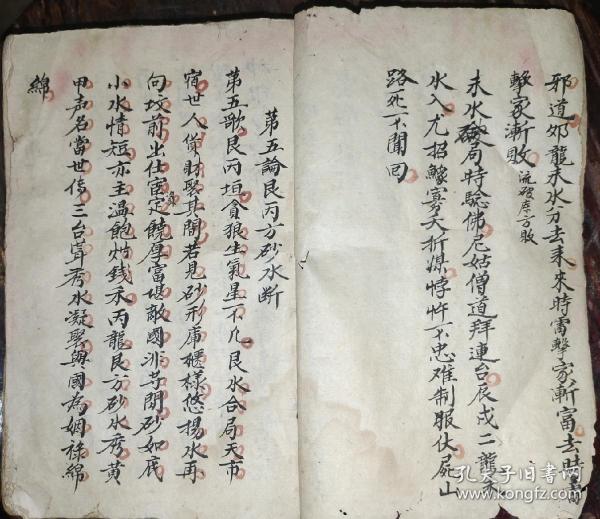 邪道邜龍未水方去来来時雷擊家漸富去時雷
擊家漸敗流破庫方敗
未水破局時驗佛尼姑僧道拜連台辰戌二龍
水入尤招鰥寡夭折媒悖忤不忠难制服伏屍山
路死不聞回
第五論艮丙方砂水断
第五歌艮丙垣貪狼生氣星不凡艮水合局天市
宿世人貨財聚其間若見砂形庫櫃樣悠揚水再
向坟前出仕富定饒厚富堪敵國涉等閒砂如底
小水情短亦主温飽出錢禾丙龍艮方砂水秀黄
甲声名當世傳三台聳秀水凝聚與國為姻祿綿
綿
孔夫子旧书网
www.kongfz.com